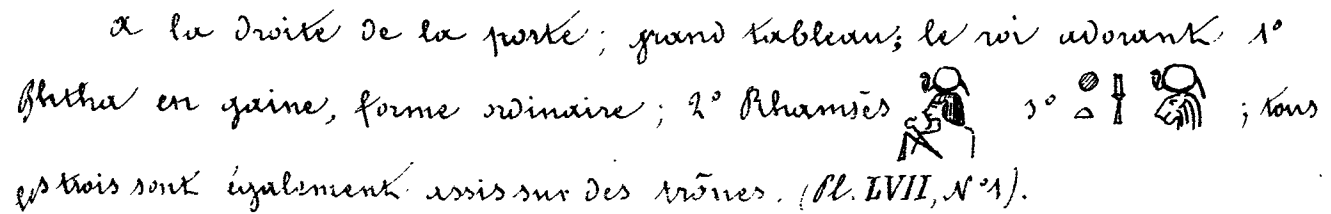 A la droite de la porte; grand tableau; le roi adorant 1°
Phtha en gaine, forme ordinaire; 2° Rhamsès 3° ; tous
les trois sont également assis sur des trônes. (Pl. LVII, N°1).